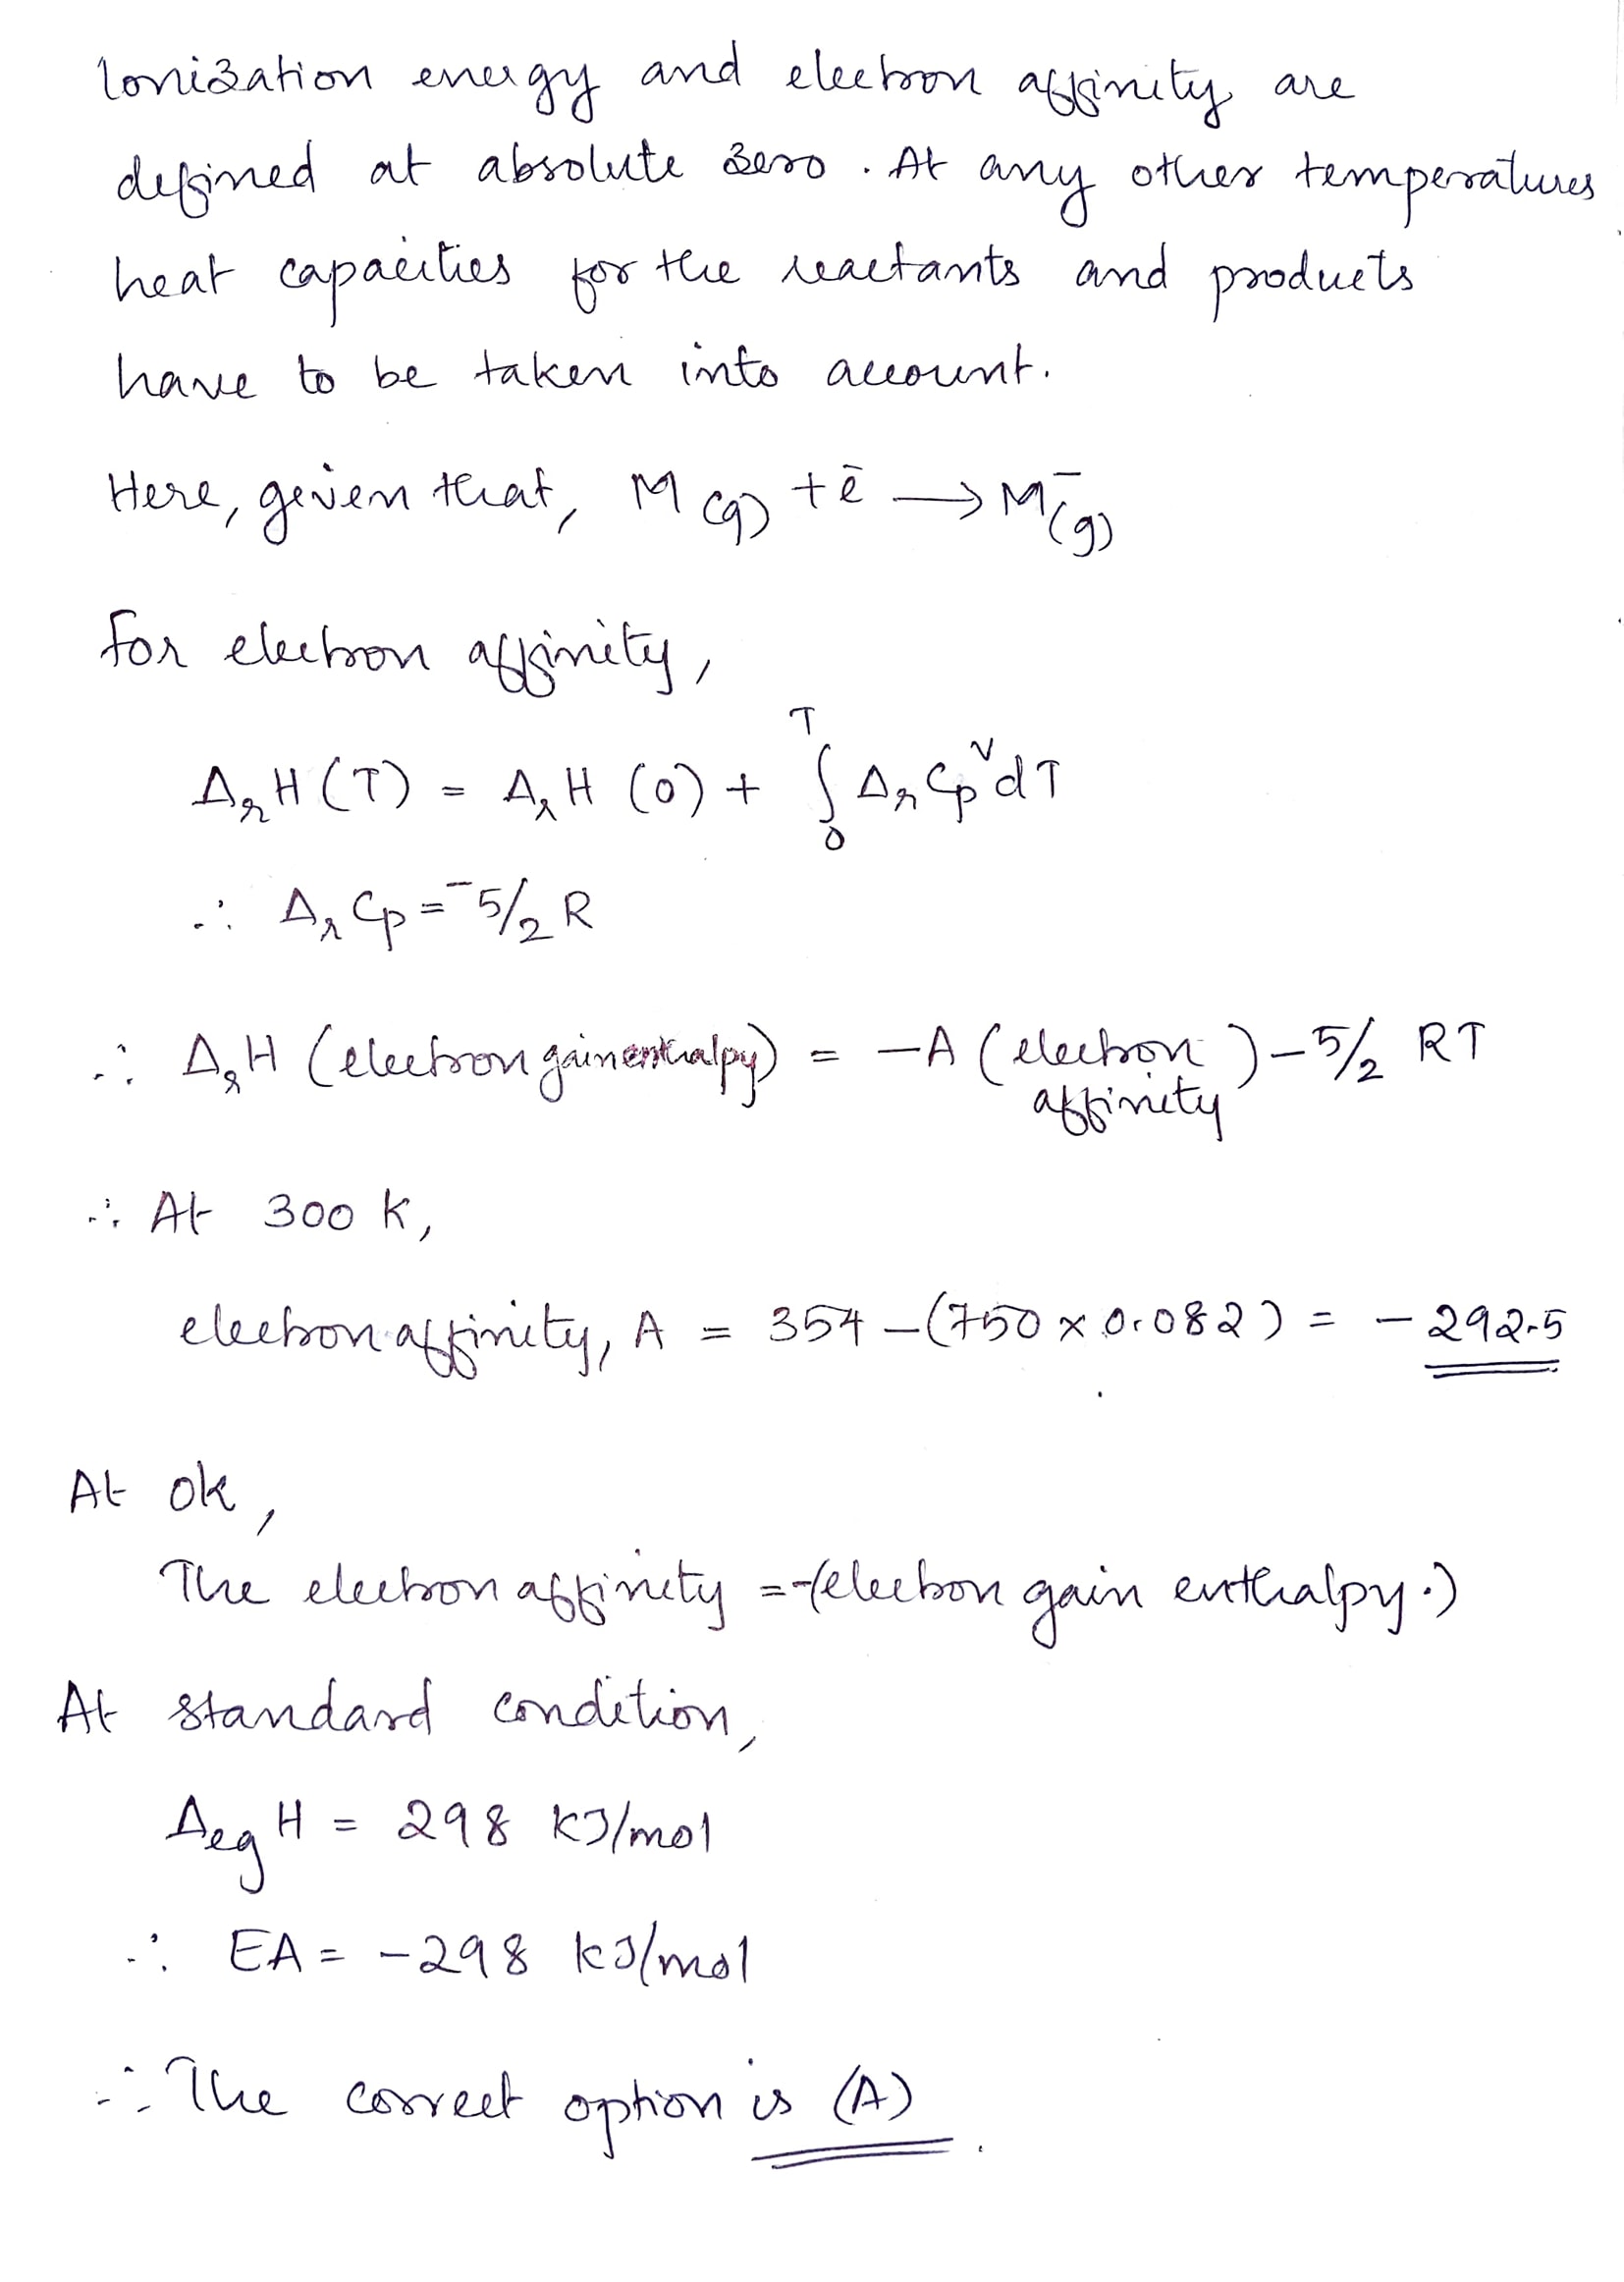 Ionization energy and electron affinity are
defined at absolute zero. At any other temperatures
heat capacities for the reactants and products
have to be taken into account.
Here, given that, M(g) + ē → M⁻(g)
for electron affinity,
ΔᵣH(T) = ΔᵣH(0) + ∫₀ᵀ ΔᵣCp dT
∴ ΔᵣCp = -5/2 R
∴ ΔᵣH (electron gain enthalpy) = -A (electron affinity) - 5/2 RT
∴ At 300 K,
electron affinity, A = 354 - (750 × 0.082) = - 292.5
At 0K,
The electron affinity = -(electron gain enthalpy.)
At standard condition,
ΔegH = 298 KJ/mol
∴ EA = -298 kJ/mol
∴ The correct option is (A).